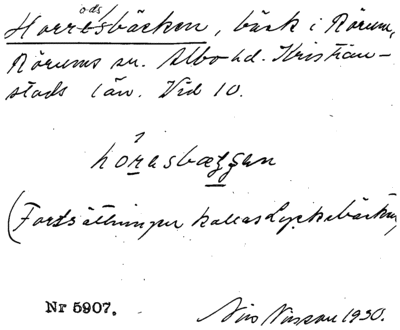 ods
Horresbäcken, bäck i Rörum,
Rörums sn. Albo hd. Kristian-
stads län. Vid 10.
hörasbæggen
(Fortsättningen kallas Lyckebäcken)
Nr 5907.
Nils Nilsson 1930.